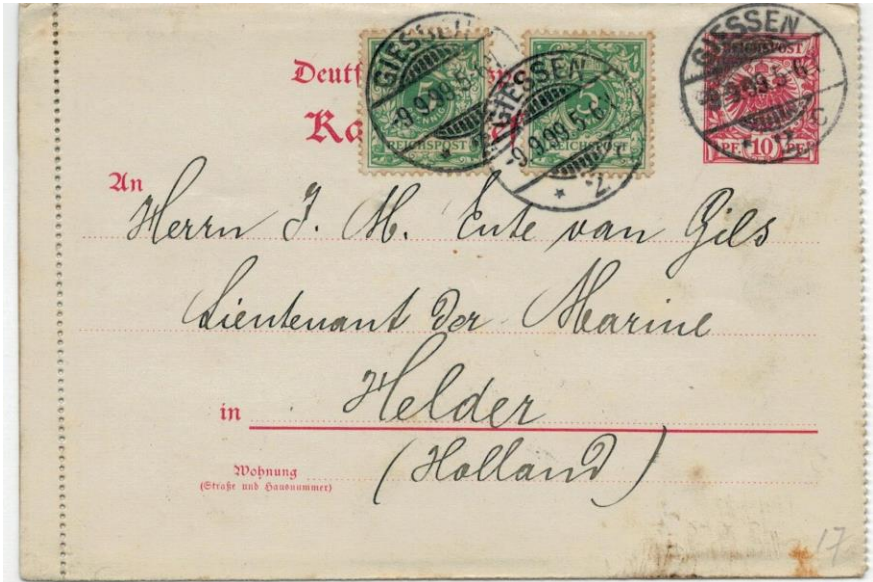 GIESSEN
-9.9.99.5-6
REICHSPOST
GIESSEN
-9.9.99.5-6
5
REICHSPOST
2
GIESSEN
9.9.99.5-6
REICHSPOST
PF. 10 PF.
An
Herrn J. M. Ente van Gils
Lieutenant der Marine
in Helder
Wohnung
(Straße und Hausnummer)
(Holland)
17